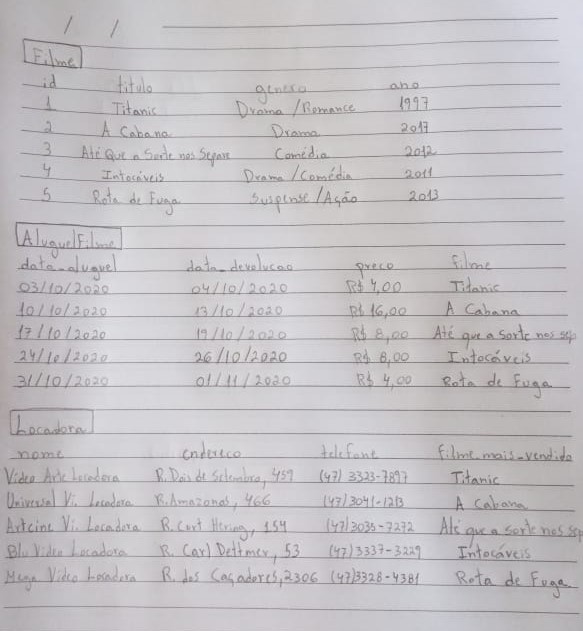 / /
Filme
id titulo genero ano
1 Titanic Drama/Romance 1997
2 A Cabana Drama 2017
3 Até Que a Sorte nos Separe Comédia 2012
4 Intocáveis Drama/Comédia 2011
5 Rota de Fuga Suspense/Ação 2013
AluguelFilme
data_aluguel data_devolucao preco filme
03/10/2020 04/10/2020 R$ 4,00 Titanic
10/10/2020 13/10/2020 R$ 16,00 A Cabana
17/10/2020 19/10/2020 R$ 8,00 Até que a sorte nos sep
24/10/2020 26/10/2020 R$ 8,00 Intocáveis
31/10/2020 01/11/2020 R$ 4,00 Rota de Fuga
Locadora
nome endereco telefone filme_mais_vendido
Video Arte Locadora R. Dois de Setembro, 459 (47) 3323-7897 Titanic
Universal Vi. Locadora R. Amazonas, 466 (47) 3041-1213 A Cabana
Artcine Vi. Locadora R. Curt Hering, 154 (47) 3035-7272 Até que a sorte nos sep
Blu Video Locadora R. Carl Dettmer, 53 (47) 3337-3229 Intocáveis
Mega Video Locadora R. dos Caçadores, 2306 (47) 3328-4381 Rota de Fuga